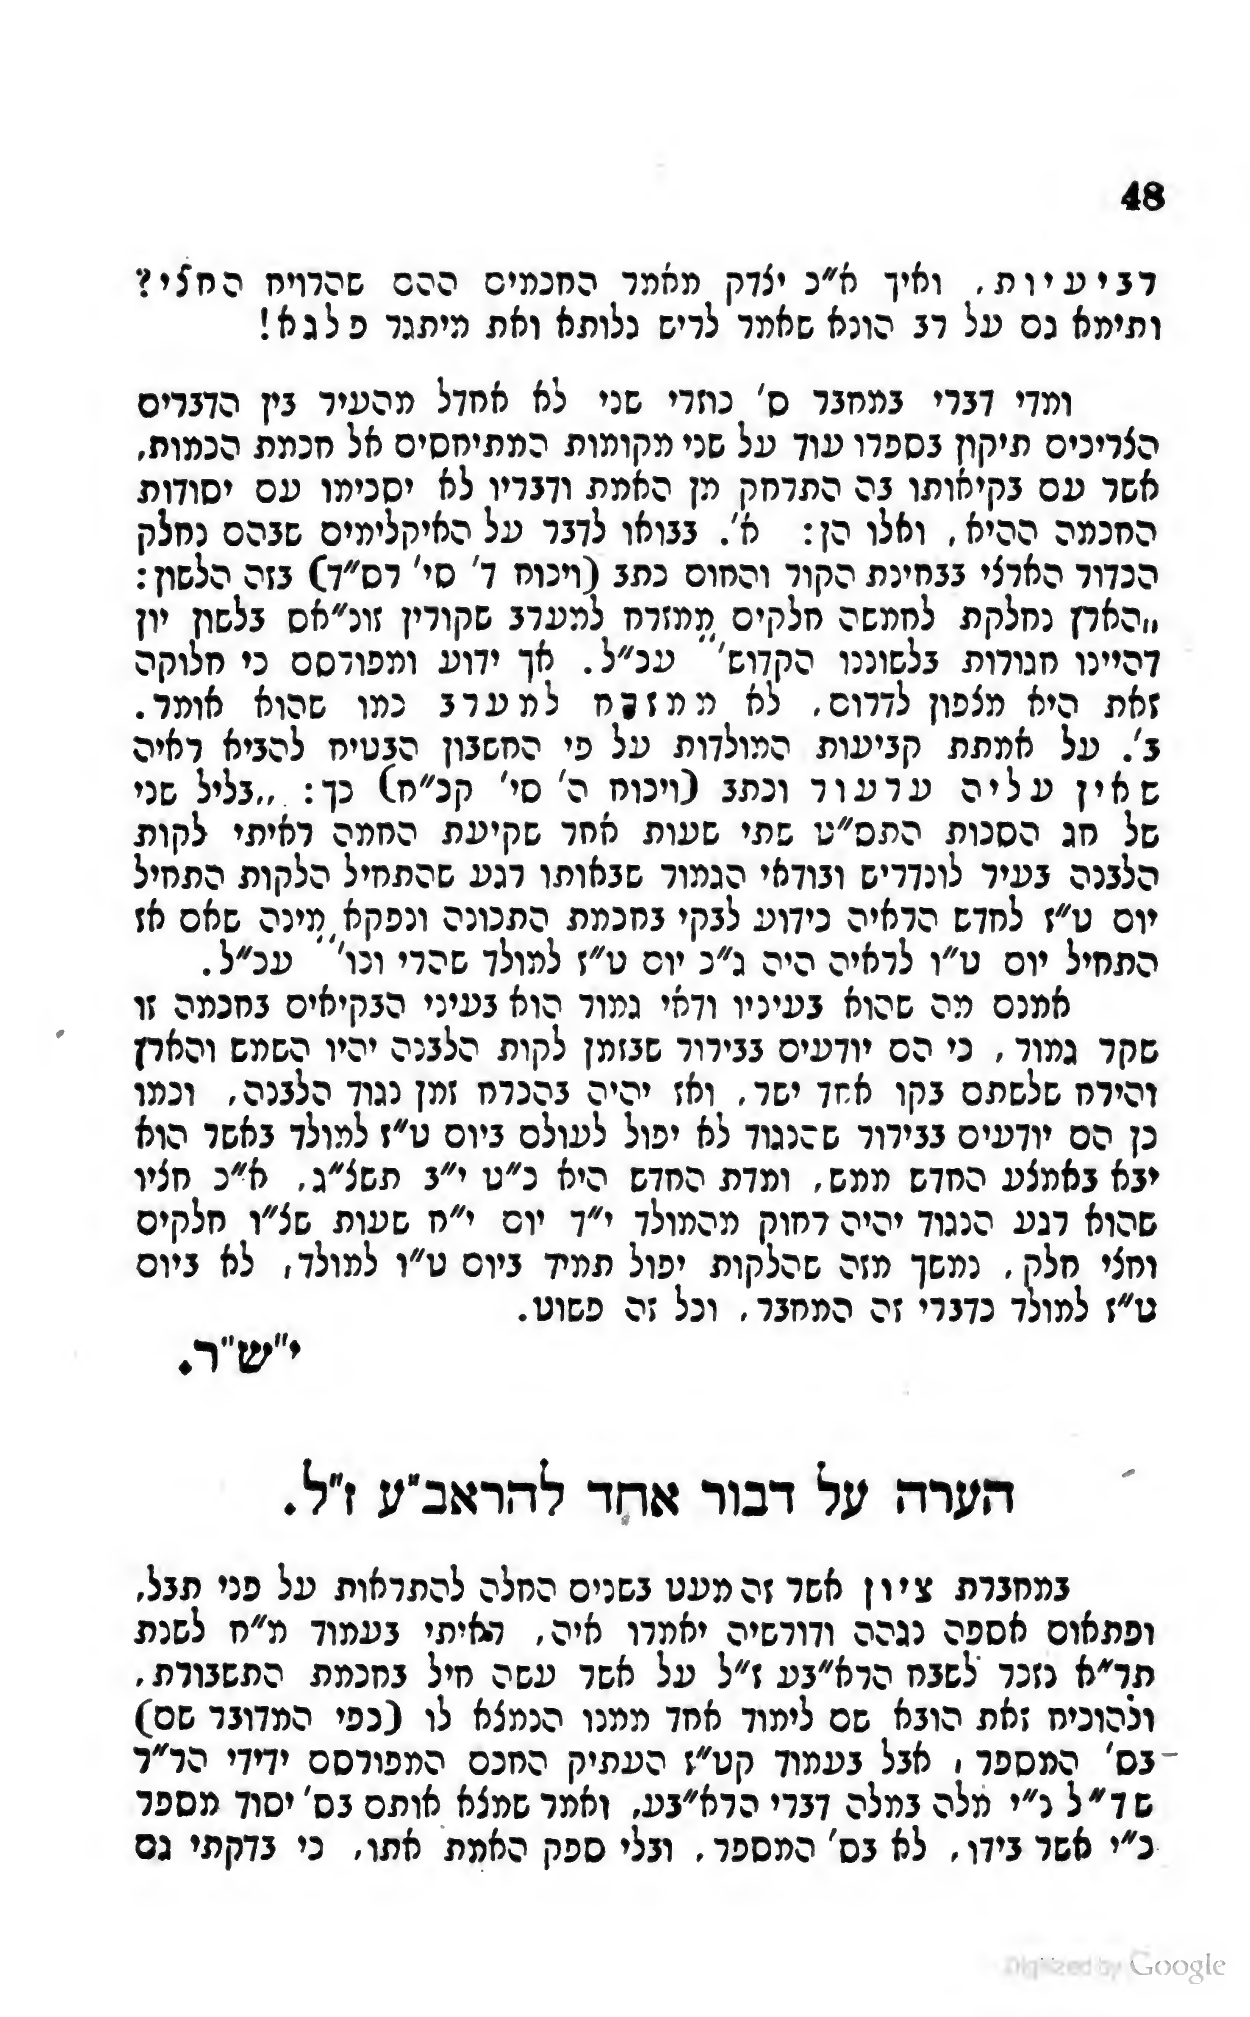 48
רביעיות, ואיך א"כ יצדק מאמר החכמים ההם שהרויח החצי?
ותימא גם על רב הונא שאמר לריש גלותא ואת מיתגר פלגא!
ומדי דברי במחבר ס' כוזרי שני לא אחדל מהעיר בין הדברים
הצריכים תיקון בספרו עוד על שני מקומות המתיחסים אל חכמת הכמות,
אשר עם בקיאותו בה התרחק מן האמת ודבריו לא יסכימו עם יסודות
החכמה ההיא, ואלו הן: א'. בבואו לדבר על האיקלימים שבהם נחלק
הכדור הארצי בבחינת הקור והחום כתב (ויכוח ד' סי' רס"ד) בזה הלשון:
„הארץ נחלקת לחמשה חלקים ממזרח למערב שקורין זונ"אס בלשון יון
דהיינו חגורות בלשוננו הקדוש'" עכ"ל. אך ידוע ומפורסם כי חלוקה
זאת היא מצפון לדרום, לא ממזרח למערב כמו שהוא אומר.
ב'. על אמתת קביעות המולדות על פי החשבון הבטיח להביא ראיה
שאין עליה ערעור וכתב (ויכוח ה' סי' קכ"ח) כך: „בליל שני
של חג הסכות התס"ט שתי שעות אחר שקיעת החמה ראיתי לקות
הלבנה בעיר לונדריש ובודאי הגמור שבאותו רגע שהתחיל הלקות התחיל
יום ט"ז לחדש הראיה כידוע לבקי בחכמת התכונה ונפקא מינה שאם אז
התחיל יום ט"ו לראיה היה ג"כ יום ט"ז למולד שהרי וכו'" עכ"ל.
אמנם מה שהוא בעיניו ודאי גמור הוא בעיני הבקיאים בחכמה זו
שקר גמור, כי הם יודעים בבירור שבזמן לקות הלבנה יהיו השמש והארץ
והירח שלשתם בקו אחד ישר, ואז יהיה בהכרח זמן נגוד הלבנה, וכמו
כן הם יודעים בבירור שהנגוד לא יפול לעולם ביום ט"ז למולד באשר הוא
יבא באמצע החדש ממש, ומדת החדש היא כ"ט י"ב תשצ"ג, א"כ חציו
שהוא רגע הנגוד יהיה רחוק מהמולד י"ד יום י"ח שעות שצ"ו חלקים
וחצי חלק, נמשך מזה שהלקות יפול תמיד ביום ט"ו למולד, לא ביום
ט"ז למולד כדברי זה המחבר, וכל זה פשוט.
י"ש"ר.
הערה על דבור אחד להראב"ע ז"ל.
במחברת ציון אשר זה מעט בשנים החלה להתראות על פני תבל,
ופתאום אספה נגהה ודורשיה יאמרו איה, ראיתי בעמוד מ"ח לשנת
תר"א נזכר לשבח הרא"בע ז"ל על אשר עשה חיל בחכמת התשבורת,
ולהוכיח זאת הובא שם לימוד אחד ממנו הנמצא לו (כפי המדובר שם)
בס' המספר, אבל בעמוד קט"ז העתיק החכם המפורסם ידידי הר"ר
שד"ל נ"י מלה במלה דברי הרא"בע, ואמר שמצא אותם בס' יסוד מספר
כ"י אשר בידו, לא בס' המספר, ובלי ספק האמת אתו, כי בדקתי גם
Digitized by Google